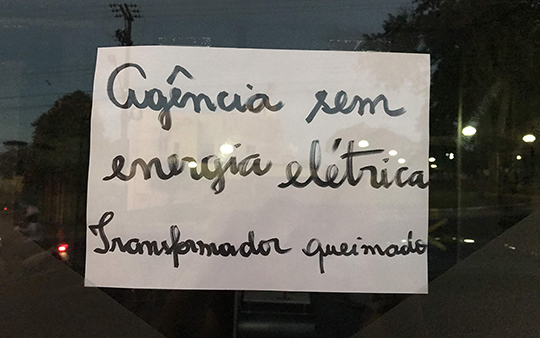 Agência sem
energia elétrica
Transformador queimado